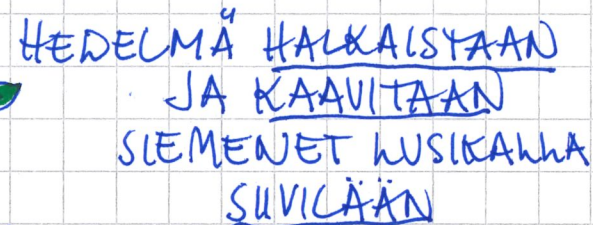 HEDELMÄ HALKAISTAAN
JA KAAVITAAN
SIEMENET LUSIKALLA
SIIVILÄÄN